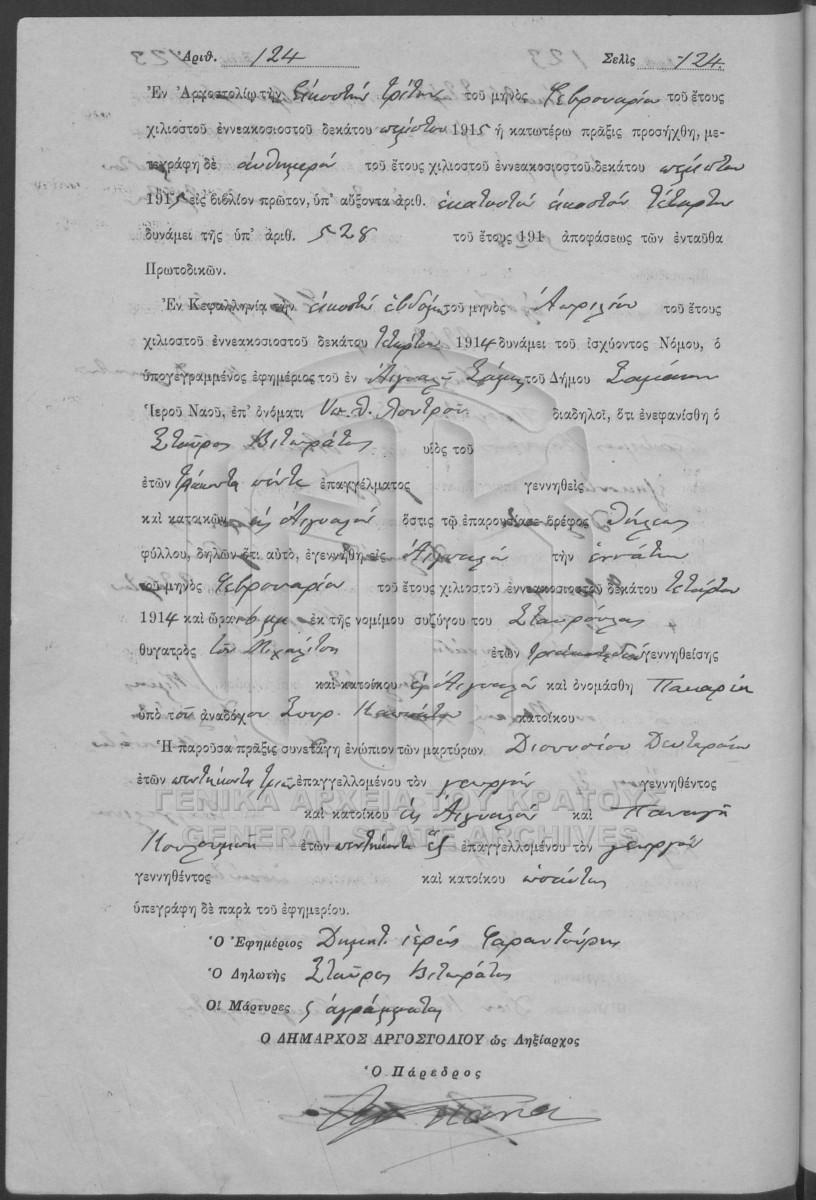 Ἀριθ. 124 Σελὶς 124
Ἐν Ἀργοστολίῳ τὴν εἰκοστὴν τρίτην τοῦ μηνὸς Φεβρουαρίου τοῦ ἔτους
χιλιοστοῦ ἐννεακοσιοστοῦ δεκάτου πέμπτου 1915 ἡ κατωτέρω πρᾶξις προσήχθη, με-
τεγράφη δὲ αὐθημερόν τοῦ ἔτους χιλιοστοῦ ἐννεακοσιοστοῦ δεκάτου πέμπτου
1915 εἰς βιβλίον πρῶτον, ὑπ' αὔξοντα ἀριθ. ἑκατοστὸν εἰκοστὸν τέταρτον
δυνάμει τῆς ὑπ' ἀριθ. 528 τοῦ ἔτους 191 ἀποφάσεως τῶν ἐνταῦθα
Πρωτοδικῶν.
Ἐν Κεφαλληνίᾳ τὴν εἰκοστὴν ἑβδόμην τοῦ μηνὸς Ἀπριλίου τοῦ ἔτους
χιλιοστοῦ ἐννεακοσιοστοῦ δεκάτου τετάρτου 1914 δυνάμει τοῦ ἰσχύοντος Νόμου, ὁ
ὑπογεγραμμένος ἐφημέριος τοῦ ἐν Αἰγιαλῷ Σάμης τοῦ Δήμου Σαμαίων
Ἱεροῦ Ναοῦ, ἐπ' ὀνόματι Υπ. Θ. Λουτροῦ διαδηλοῖ, ὅτι ἐνεφανίσθη ὁ
Σταῦρος Βιτωρᾶτος υἱὸς τοῦ
ἐτῶν τριάκοντα πέντε ἐπαγγέλματος γεννηθεὶς
καὶ κατοικῶν εἰς Αἰγιαλόν ὅστις τῷ ἐπαρουσίασε βρέφος θήλεος
φύλλου, δηλῶν ὅτι αὐτὸ, ἐγεννήθη εἰς Αἰγιαλόν τὴν ἐννάτην
τοῦ μηνὸς Φεβρουαρίου τοῦ ἔτους χιλιοστοῦ ἐννεακοσιοστοῦ δεκάτου τετάρτου
1914 καὶ ὥραν 6 μμ ἐκ τῆς νομίμου συζύγου του Σταυρούλας
θυγατρὸς τοῦ Μιχαλίτση ἐτῶν τριάκοντα δύο γεννηθείσης
καὶ κατοίκου εἰς Αἰγιαλόν καὶ ὀνομάσθη
ὑπὸ τοῦ ἀναδόχου Σπυρ. κατοίκου
Ἡ παροῦσα πρᾶξις συνετάγη ἐνώπιον τῶν μαρτύρων Διονυσίου Δευτεραίου
ἐτῶν πεντήκοντα τριῶν ἐπαγγελλομένου τὸν γεωργόν γεννηθέντος
καὶ κατοίκου εἰς Αἰγιαλόν καὶ Παναγῆ
ΓΕΝΙΚΑ ΑΡΧΕΙΑ ΤΟΥ ΚΡΑΤΟΥΣ
GENERAL STATE ARCHIVES
Κουλουμπῆ ἐτῶν πεντήκοντα ἕξ ἐπαγγελλομένου τὸν γεωργόν
γεννηθέντος καὶ κατοίκου ὡσαύτως
ὑπεγράφη δὲ παρὰ τοῦ ἐφημερίου.
Ὁ Ἐφημέριος Δημητ. ἱερεὺς Φαραντούρης
Ὁ Δηλωτὴς Σταῦρος Βιτωρᾶτος
Οἱ Μάρτυρες ἀγράμματοι
Ο ΔΗΜΑΡΧΟΣ ΑΡΓΟΣΤΟΛΙΟΥ ὡς Ληξίαρχος
Ὁ Πάρεδρος